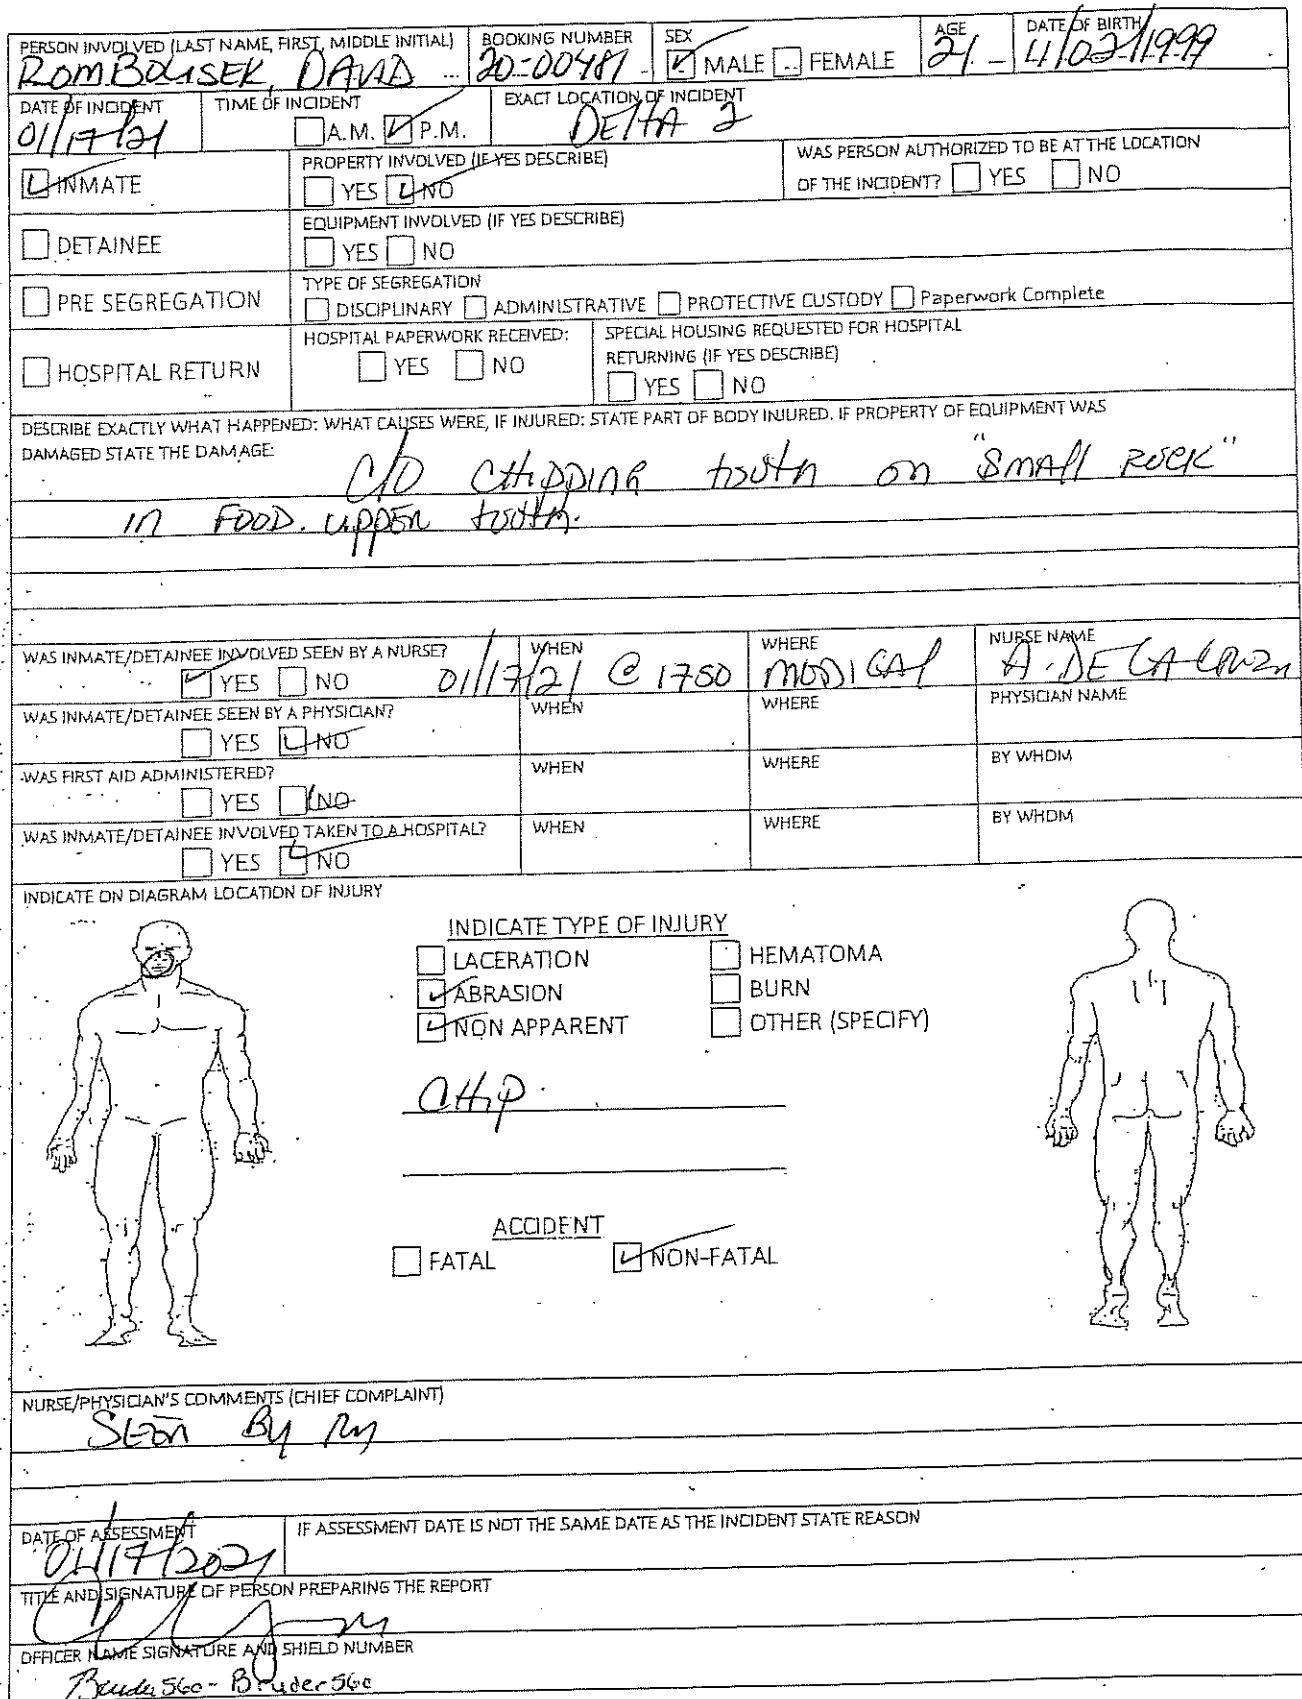 PERSON INVOLVED (LAST NAME, FIRST, MIDDLE INITIAL) BOOKING NUMBER SEX AGE DATE OF BIRTH
ROMBOUSEK, DAVID 20-00481 MALE FEMALE 21 11/02/1999
DATE OF INCIDENT TIME OF INCIDENT EXACT LOCATION OF INCIDENT
01/17/21 A.M. P.M. DELTA 2
INMATE PROPERTY INVOLVED (IF YES DESCRIBE) WAS PERSON AUTHORIZED TO BE AT THE LOCATION
YES NO OF THE INCIDENT? YES NO
DETAINEE EQUIPMENT INVOLVED (IF YES DESCRIBE)
YES NO
PRE SEGREGATION TYPE OF SEGREGATION
DISCIPLINARY ADMINISTRATIVE PROTECTIVE CUSTODY Paperwork Complete
HOSPITAL RETURN HOSPITAL PAPERWORK RECEIVED: SPECIAL HOUSING REQUESTED FOR HOSPITAL
YES NO RETURNING (IF YES DESCRIBE)
YES NO
DESCRIBE EXACTLY WHAT HAPPENED: WHAT CAUSES WERE, IF INJURED: STATE PART OF BODY INJURED. IF PROPERTY OF EQUIPMENT WAS
DAMAGED STATE THE DAMAGE:
C/O CHIPPING tooth on "SMALL ROCK"
in FOOD. upper tooth.
WAS INMATE/DETAINEE INVOLVED SEEN BY A NURSE? WHEN WHERE NURSE NAME
YES NO 01/17/21 @ 1750 MEDICAL A. DE LA CRUZ
WAS INMATE/DETAINEE SEEN BY A PHYSICIAN? WHEN WHERE PHYSICIAN NAME
YES NO
WAS FIRST AID ADMINISTERED? WHEN WHERE BY WHOM
YES NO
WAS INMATE/DETAINEE INVOLVED TAKEN TO A HOSPITAL? WHEN WHERE BY WHOM
YES NO
INDICATE ON DIAGRAM LOCATION OF INJURY
INDICATE TYPE OF INJURY
LACERATION HEMATOMA
ABRASION BURN
NON APPARENT OTHER (SPECIFY)
CHIP
ACCIDENT
FATAL NON-FATAL
NURSE/PHYSICIAN'S COMMENTS (CHIEF COMPLAINT)
SEEN By RN
DATE OF ASSESSMENT IF ASSESSMENT DATE IS NOT THE SAME DATE AS THE INCIDENT STATE REASON
01/17/2021
TITLE AND SIGNATURE OF PERSON PREPARING THE REPORT
OFFICER NAME SIGNATURE AND SHIELD NUMBER
Bruder 560 - Bruder 560